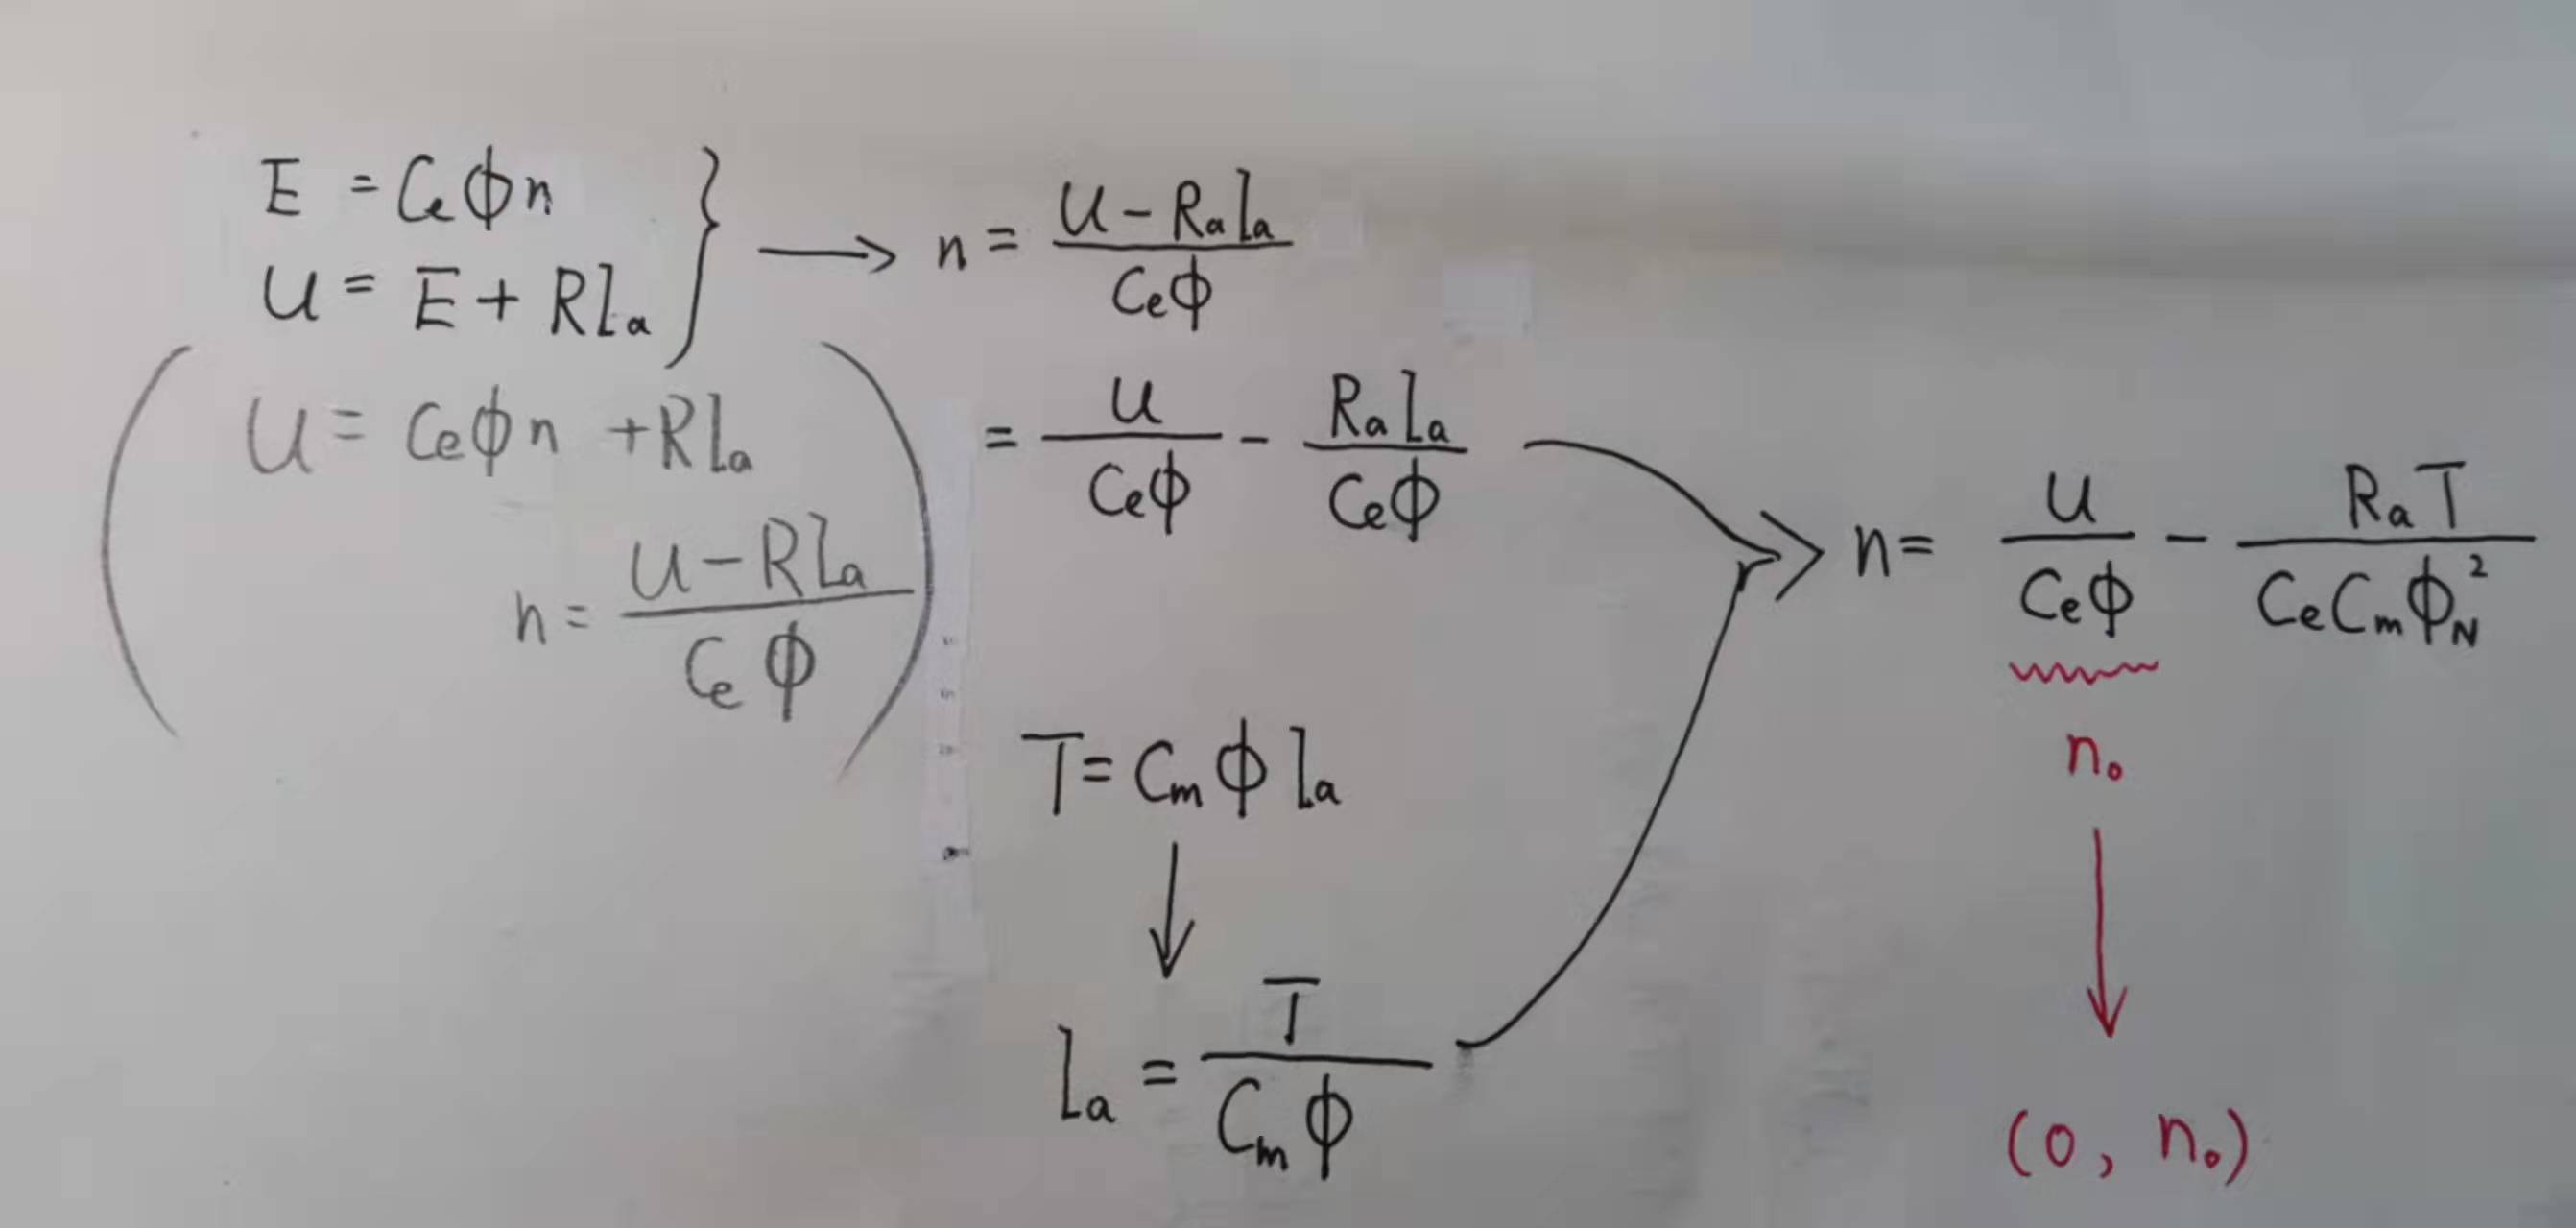 E = CeΦn
U = E + RIa
U = CeΦn + RIa
n = (U - RIa) / (CeΦ)
n = (U - RaIa) / (CeΦ)
= U / (CeΦ) - RaIa / (CeΦ)
T = CmΦIa
Ia = T / (CmΦ)
n = U / (CeΦ) - RaT / (CeCmΦN²)
n₀
(0, n₀)